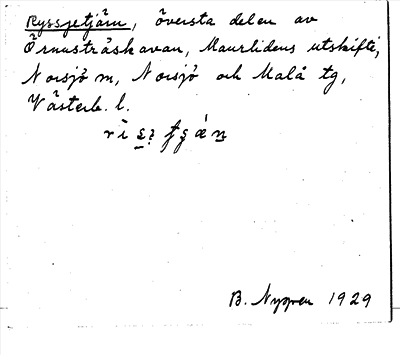 Ryssjetjärn, översta delen av
Örnusträskavan, Maurlidens utskifte,
Norsjö sn, Norsjö och Malå tg,
Västerb. l.
B. Nygren 1929